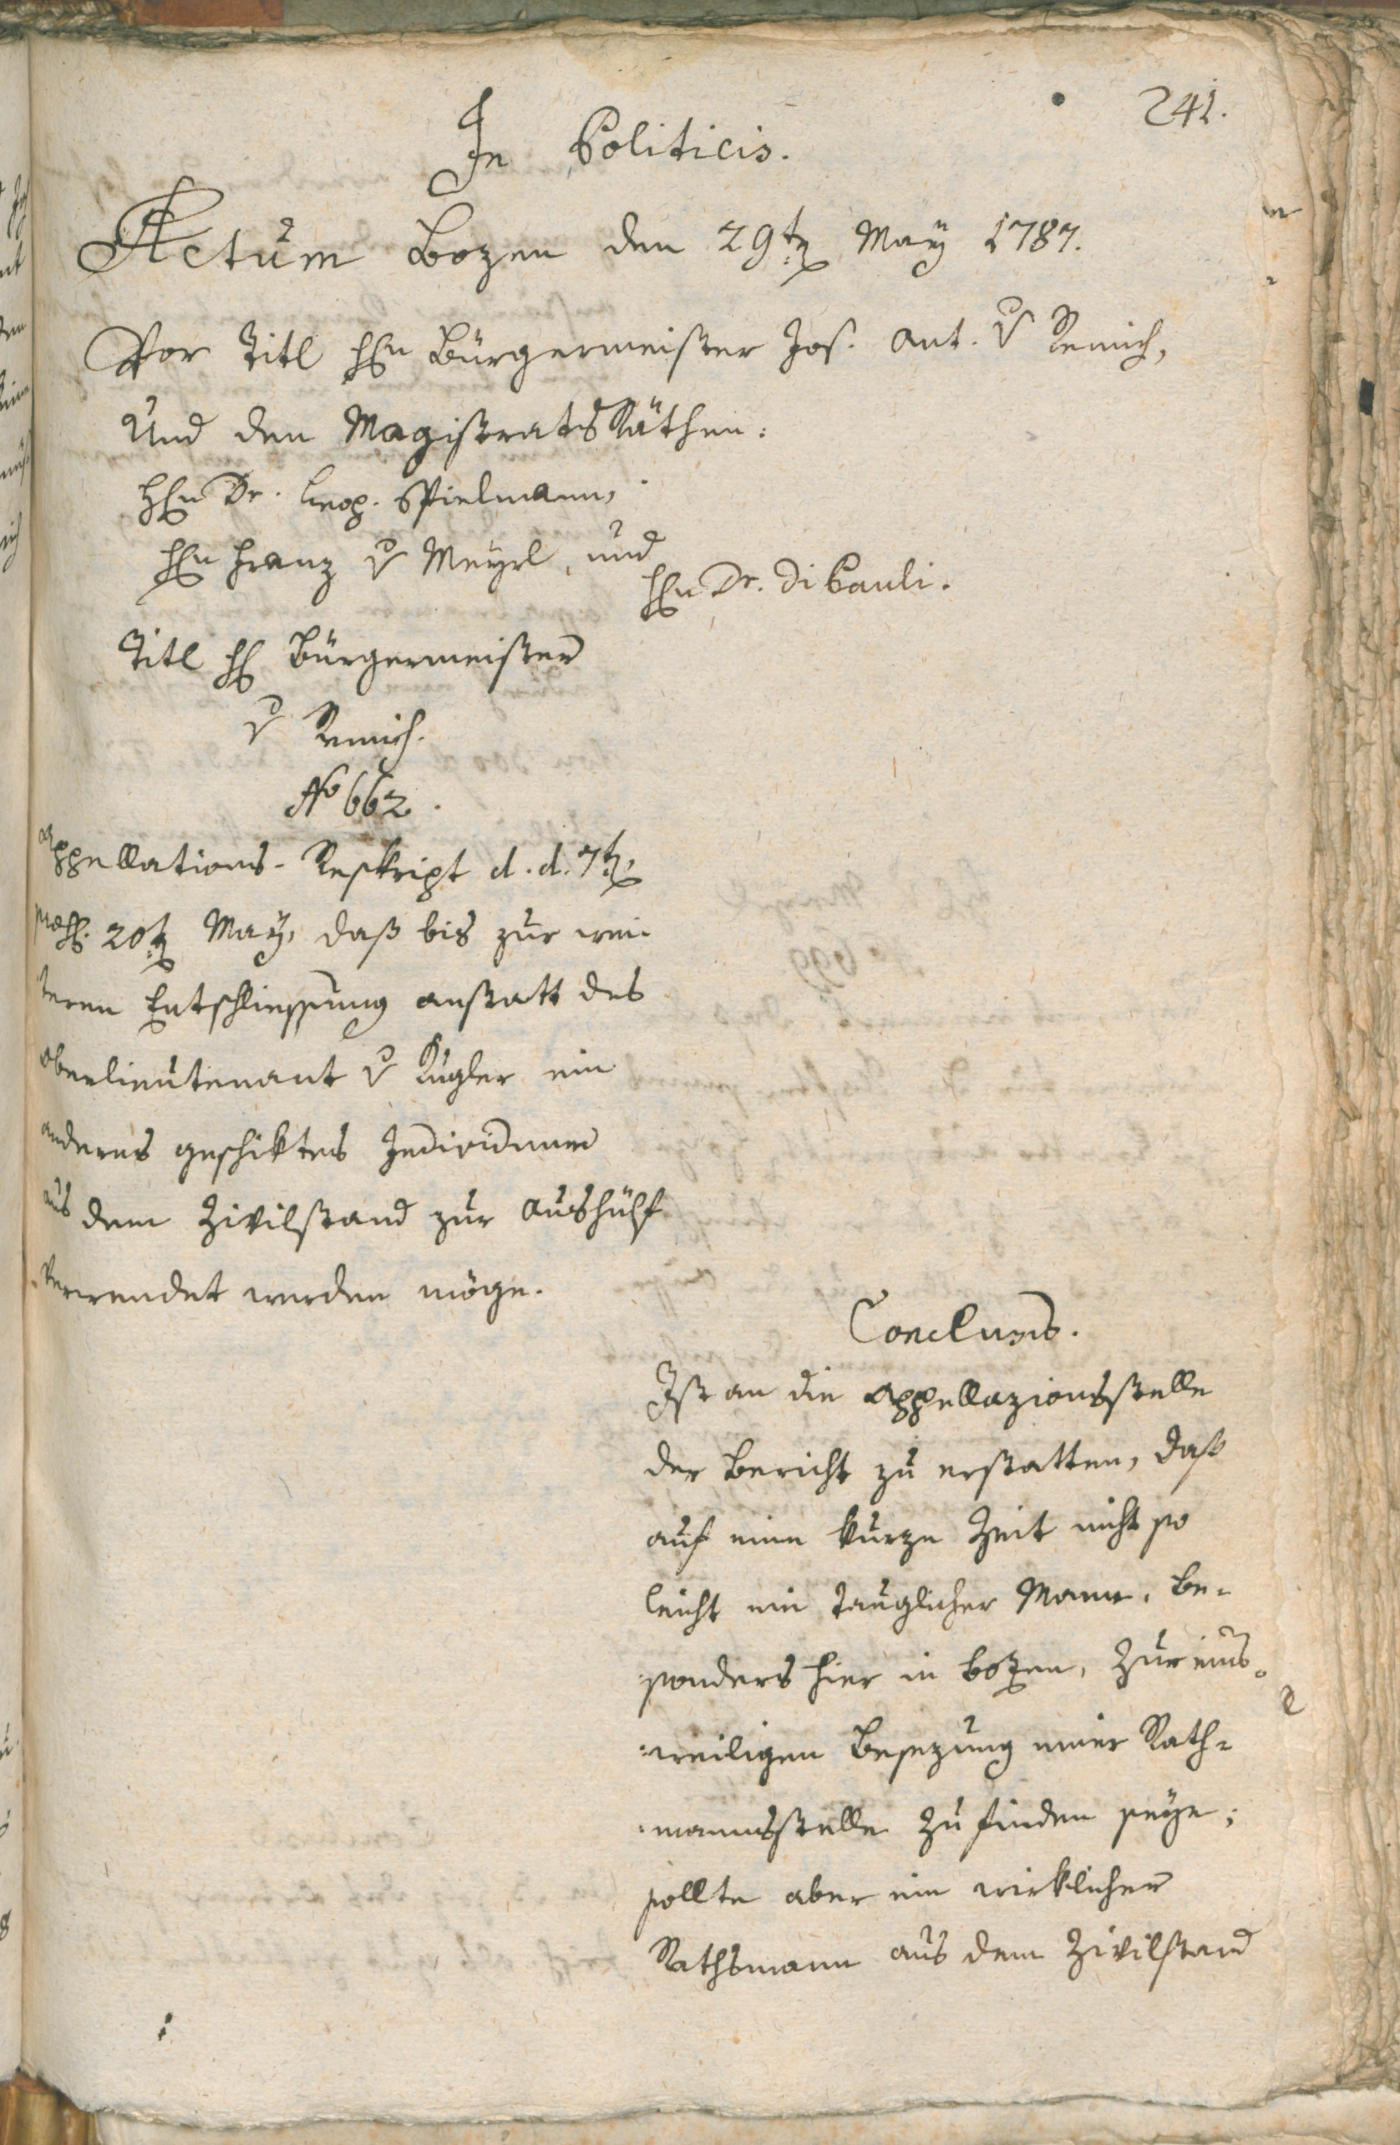 241.
In Politicis.
Actum Bozen den 29t. May 1787.
Vor Titl Hrn Bürgermeister Jos. Ant. v Remich,
Und den Magistrats Räthen:
Hrn Dr. Leop. Spielmann,
Hrn Franz v Meyrl, und
Hrn Dr. Di Pauli.
Titl H Bürgermeister
v Remich.
No 662.
Appellations-Reskript d. d. 7t.
praes. 20t May, daß bis zur wei-
teren Entschliessung anstatt des
Oberlieutenant v Kugler ein
anderes geschiktes Individuum
aus dem Zivilstand zur Aushülf
verwendet werden möge.
Conclusio.
Ist an die Appellazionsstelle
der Bericht zu erstatten, daß
auf eine kurze Zeit nicht so
leicht ein tauglicher Mann, be-
sonders hier in Bozen, zur eins-
weiligen Besezung einer Rath-
mannsstelle zu finden seye;
sollte aber ein wirklicher
Rathsmann aus dem Zivilstand